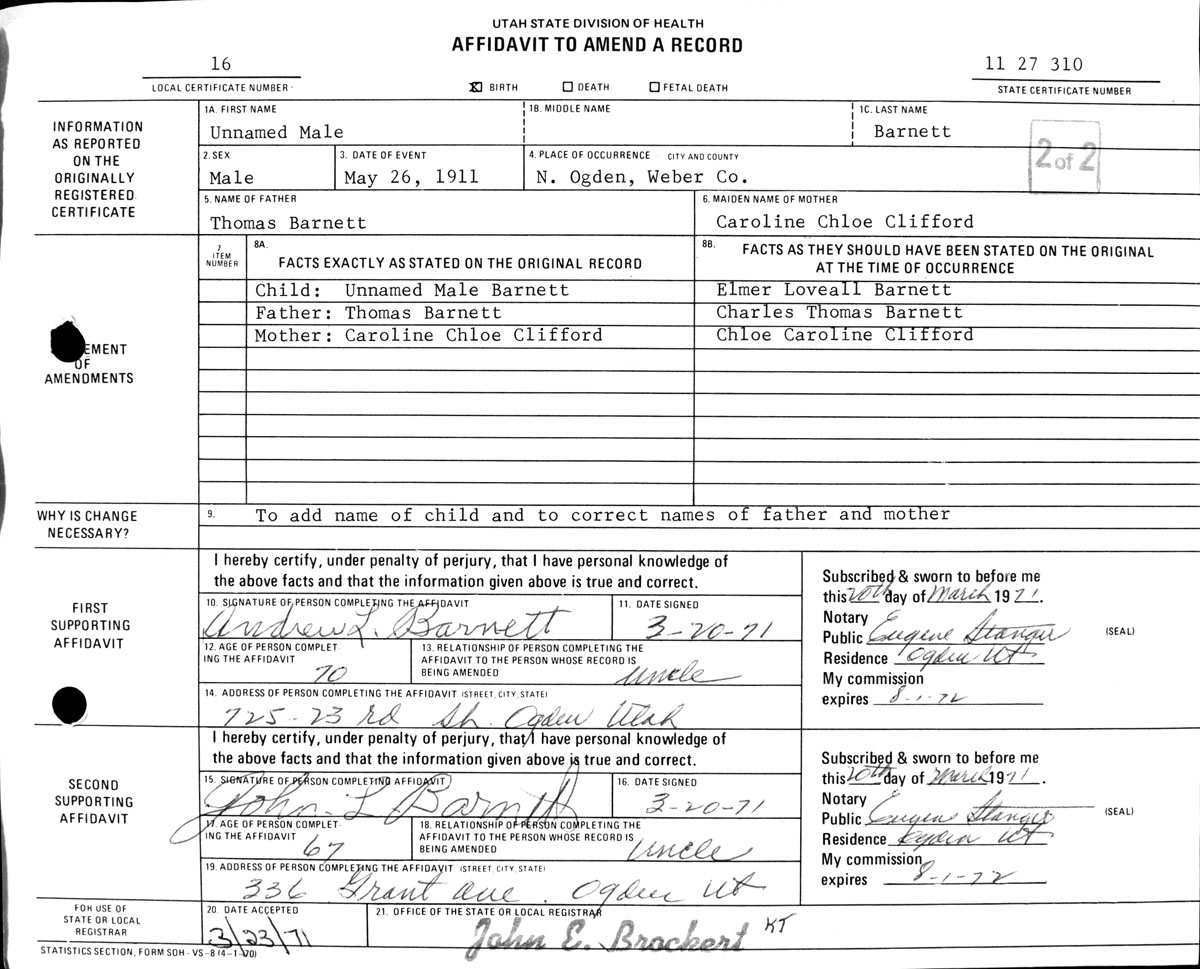 UTAH STATE DIVISION OF HEALTH
AFFIDAVIT TO AMEND A RECORD
16
11 27 310
LOCAL CERTIFICATE NUMBER
☒ BIRTH ☐ DEATH ☐ FETAL DEATH
STATE CERTIFICATE NUMBER
INFORMATION
AS REPORTED
ON THE
ORIGINALLY
REGISTERED
CERTIFICATE
1A. FIRST NAME 1B. MIDDLE NAME 1C. LAST NAME
Unnamed Male Barnett
2 of 2
2. SEX 3. DATE OF EVENT 4. PLACE OF OCCURRENCE - CITY AND COUNTY
Male May 26, 1911 N. Ogden, Weber Co.
5. NAME OF FATHER 6. MAIDEN NAME OF MOTHER
Thomas Barnett Caroline Chloe Clifford
EMENT
OF
AMENDMENTS
7
ITEM
NUMBER
8A.
FACTS EXACTLY AS STATED ON THE ORIGINAL RECORD
8B. FACTS AS THEY SHOULD HAVE BEEN STATED ON THE ORIGINAL
AT THE TIME OF OCCURRENCE
Child: Unnamed Male Barnett Elmer Loveall Barnett
Father: Thomas Barnett Charles Thomas Barnett
Mother: Caroline Chloe Clifford Chloe Caroline Clifford
WHY IS CHANGE
NECESSARY?
9. To add name of child and to correct names of father and mother
FIRST
SUPPORTING
AFFIDAVIT
I hereby certify, under penalty of perjury, that I have personal knowledge of
the above facts and that the information given above is true and correct.
10. SIGNATURE OF PERSON COMPLETING THE AFFIDAVIT 11. DATE SIGNED
Andrew L. Barnett 3-20-71
12. AGE OF PERSON COMPLET-
ING THE AFFIDAVIT
70
13. RELATIONSHIP OF PERSON COMPLETING THE
AFFIDAVIT TO THE PERSON WHOSE RECORD IS
BEING AMENDED
Uncle
14. ADDRESS OF PERSON COMPLETING THE AFFIDAVIT (STREET, CITY, STATE)
725-23 rd St. Ogden Utah
Subscribed & sworn to before me
this 20th day of March 1971.
Notary
Public Eugene Stanger (SEAL)
Residence Ogden Ut
My commission
expires 8-1-72
SECOND
SUPPORTING
AFFIDAVIT
I hereby certify, under penalty of perjury, that I have personal knowledge of
the above facts and that the information given above is true and correct.
15. SIGNATURE OF PERSON COMPLETING AFFIDAVIT 16. DATE SIGNED
John L Barnett 3-20-71
17. AGE OF PERSON COMPLET-
ING THE AFFIDAVIT
67
18. RELATIONSHIP OF PERSON COMPLETING THE
AFFIDAVIT TO THE PERSON WHOSE RECORD IS
BEING AMENDED
Uncle
19. ADDRESS OF PERSON COMPLETING THE AFFIDAVIT (STREET, CITY, STATE)
336 Grant ave. Ogden Ut
Subscribed & sworn to before me
this 20th day of March 1971.
Notary
Public Eugene Stanger (SEAL)
Residence Ogden Ut
My commission
expires 8-1-72
FOR USE OF
STATE OR LOCAL
REGISTRAR
20. DATE ACCEPTED
3/23/71
21. OFFICE OF THE STATE OR LOCAL REGISTRAR
John E. Brockert KT
STATISTICS SECTION, FORM SDH - VS - 8 (4-1-70)